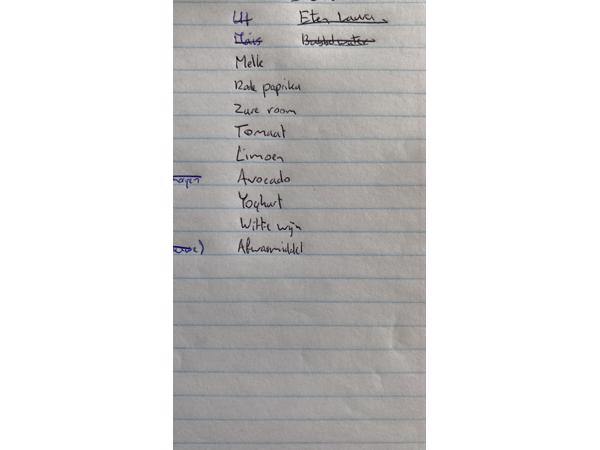 Eten Laura
Mais Bubbelwater
Melk
Rode paprika
Zure room
Tomaat
Limoen
Avocado
Yoghurt
Witte wijn
Afwasmiddel